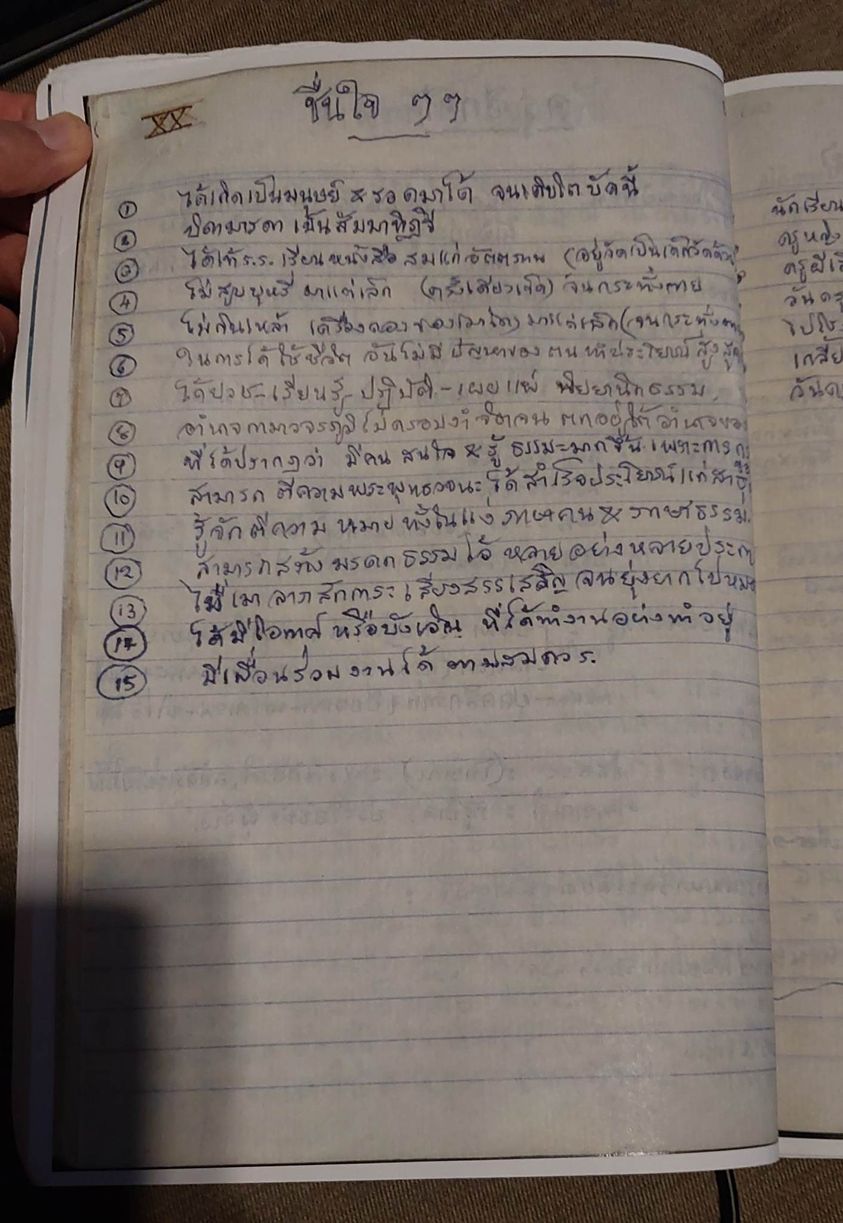 XX
ชื่นใจ ๆๆ
① ได้เกิดเป็นมนุษย์ & รอดมาได้ จนเติบโตบัดนี้
② บิดามารดาเป็นสัมมาทิฏฐิ
③ ได้เข้า ร.ร. เรียนหนังสือ สมแก่อัตตภาพ (อยู่วัดเป็นเด็กวัดด้วย
④ ไม่สูบบุหรี่ มาแต่เล็ก (ครั้งเดียวเข็ด) จนกระทั่งตาย
⑤ ไม่กินเหล้า เครื่องดองของเมาใดๆ มาแต่เล็ก (จนกระทั่งตาย
⑥ ในการได้ใช้ชีวิต อันไม่มีปัญหาของตน ทำประโยชน์สูงสุด
⑦ ได้บวช-เรียนรู้-ปฏิบัติ-เผยแพ่ นิยยานิกธรรม.
⑧ อำนาจกามาวจรภูมิ ไม่ครอบงำจิตจน ตกอยู่ใต้อำนาจของ
⑨ ที่ได้ปรากฏว่า มีคนสนใจ & รู้ ธรรมะมากขึ้น เพราะการ
⑩ สามารถ ตีความพระพุทธวจนะ ได้สำเร็จประโยชน์แก่
⑪ รู้จักตีความหมาย ทั้งในแง่ ภาษาคน & ภาษาธรรม.
⑫ สามารถสร้างมรดกธรรมไว้ หลายอย่างหลายประการ
⑬ ไม่เมาลาภสักการะ เสียงสรรเสริญ จนยุ่งยากไปหมด
⑭ ได้มีโอกาส หรือบังเอิญ ที่ได้ทำงานอย่างทำอยู่
⑮ มีเพื่อนร่วมงานได้ ตามสมควร.
นักเรียน
ครูหญิง